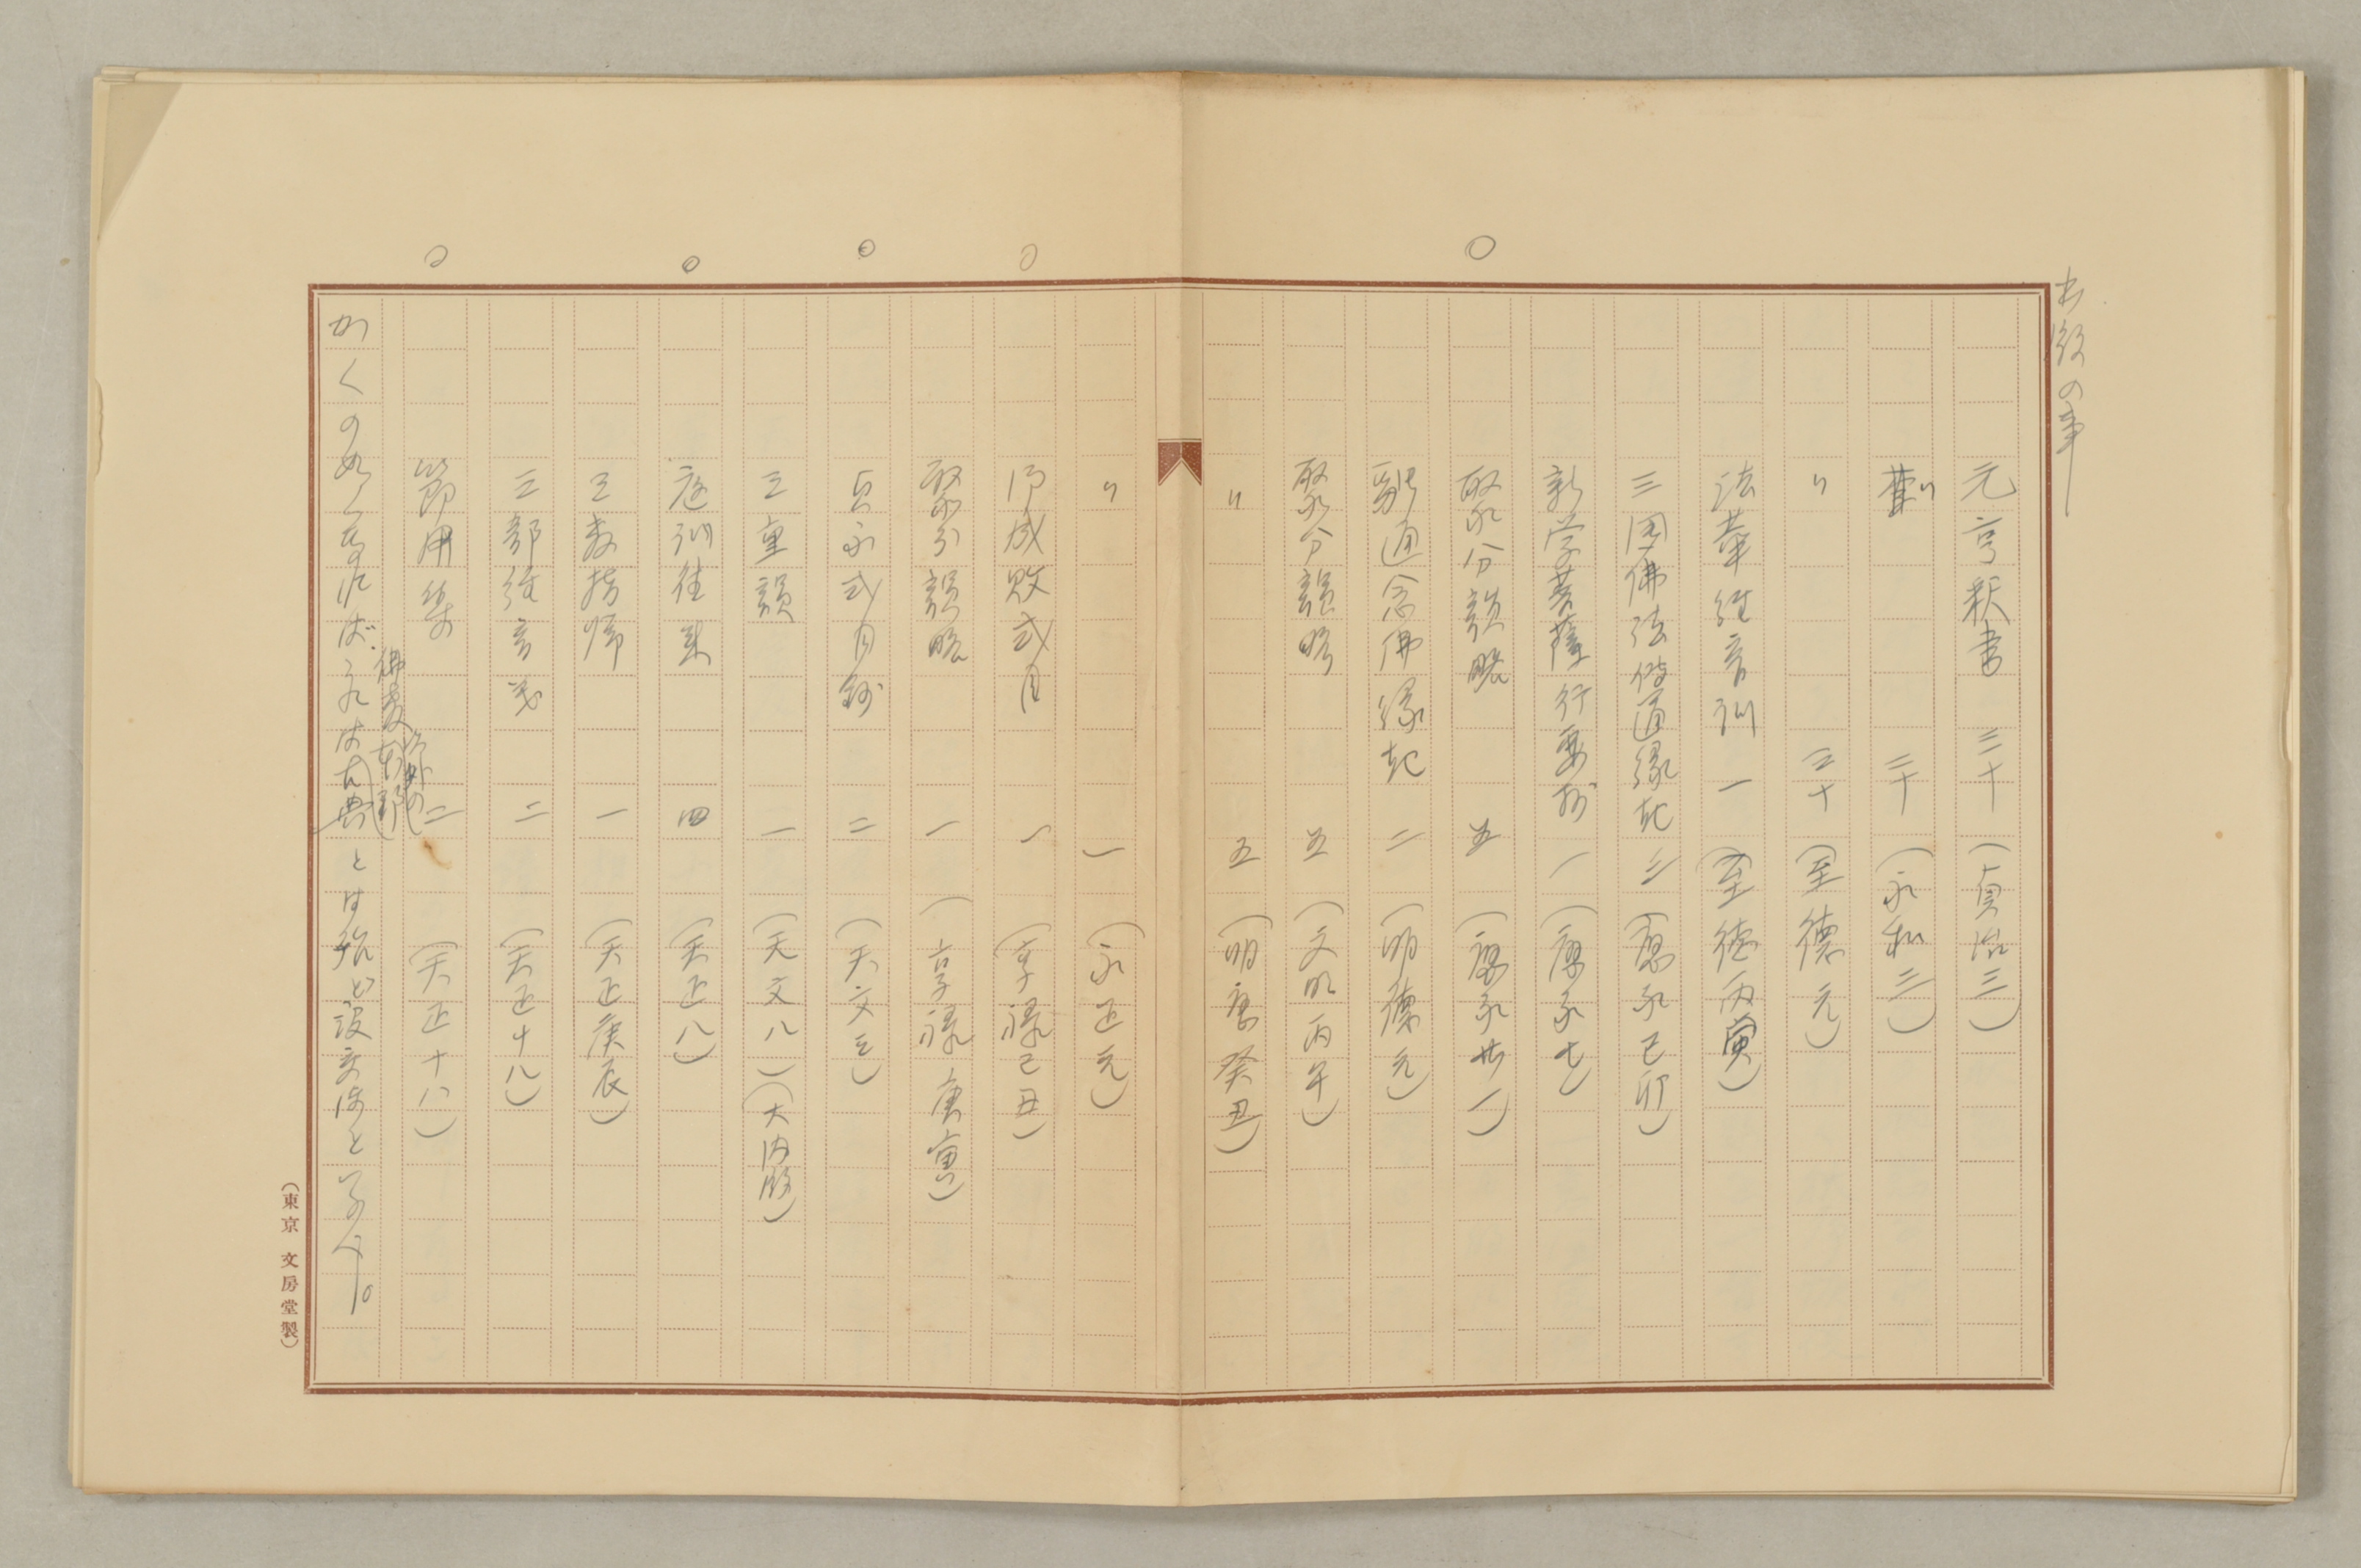 元亨釈書　三十（貞治三）
〃　三十（永和三）
〃　三十（至徳元）
法華経音訓　一（至徳丙寅）
三国佛法傳通縁起　三（應永己卯）
新学菩薩行要抄　一（應永七）
聚分韻略　五（應永廿一）
融通念佛縁起　二（明徳元）
聚分韻略　五（文明丙午）
〃　五（明應癸丑）
〃　一（永正元）
御成敗式目　一（享禄己丑）
聚分韻略　一（享禄庚寅）
貞永式目抄　二（天文三）
三重韻　一（天文八）（大内版）
庭訓往来　四（天正八）
三教指帰　一（天正庚辰）
三部経音義　二（天正十八）
節用集　二（天正十八）
佛教
以外の
かくの如くなれば
古典とは殆ど没交渉と云ふべし。
（東京　文房堂製）